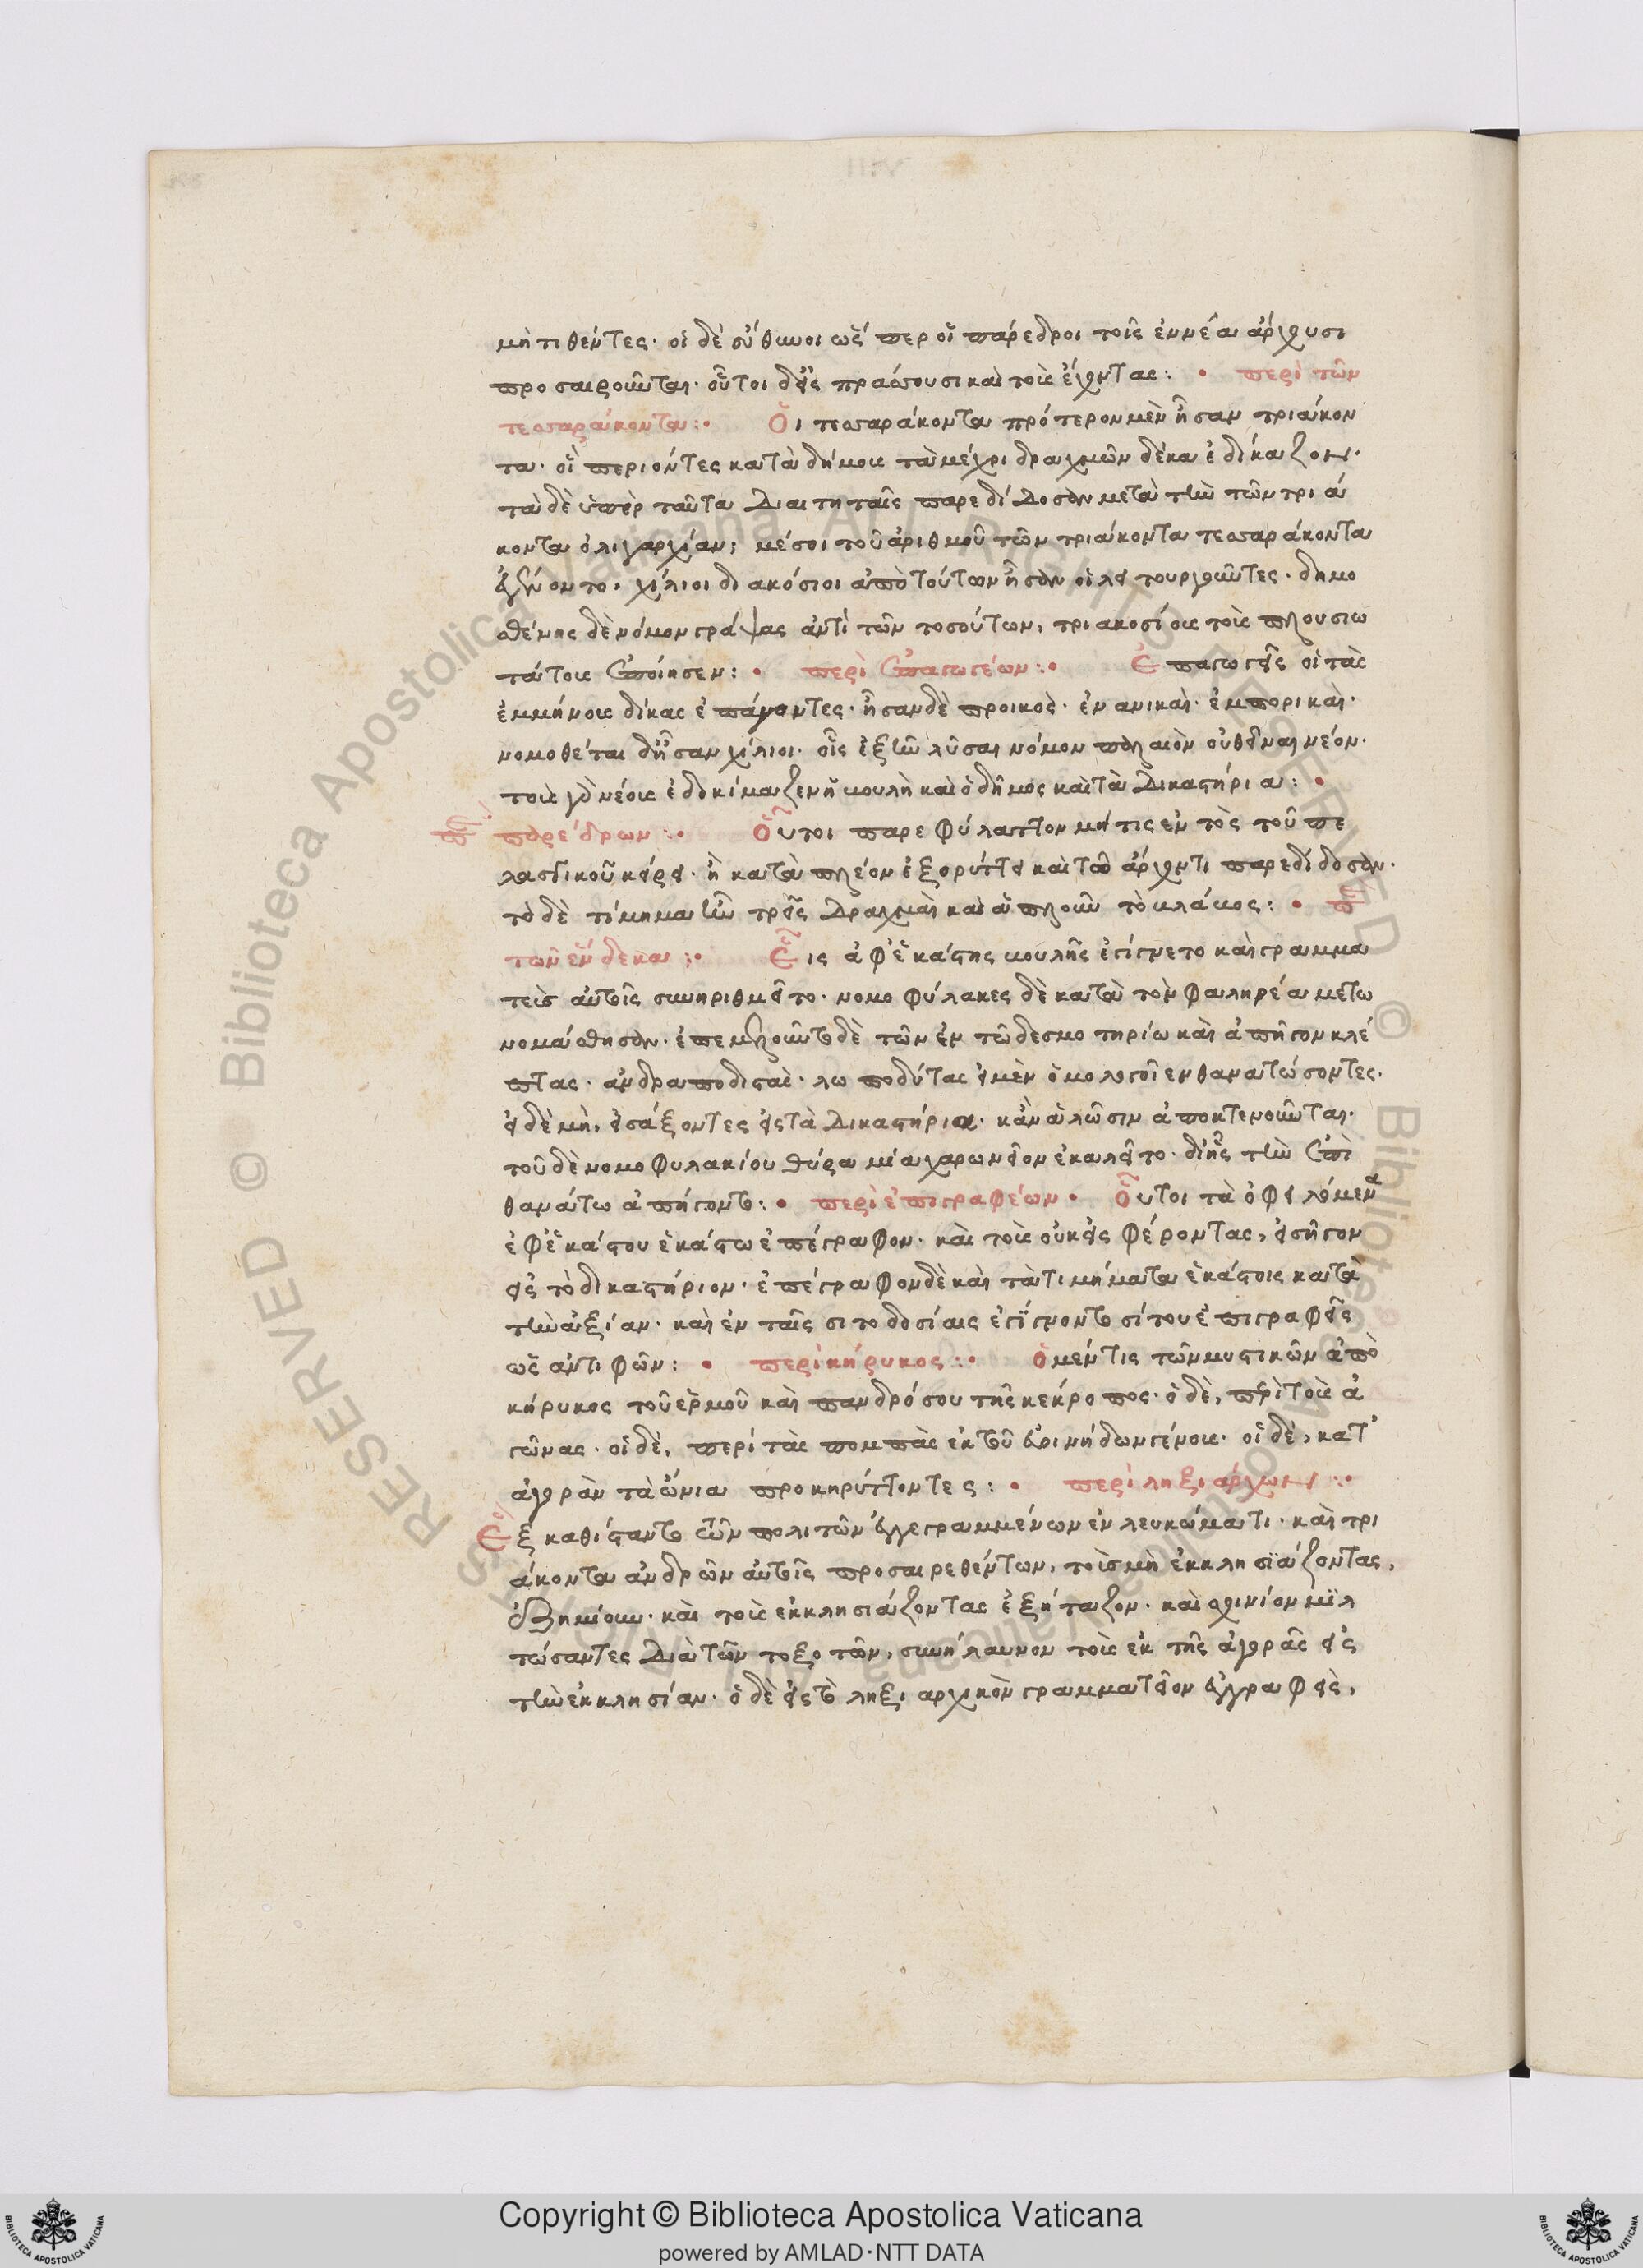 μὴ τιθέντες· οἱ δὲ εὔθυνοι ὥσπερ οἱ πάρεδροι τοῖς ἐννέα ἄρχουσι
προσαιροῦνται· οὗτοι δ' εἰσπράσσουσι καὶ τοὺς ἔχοντας: • περὶ τῶν
τεσσαράκοντα:• Οἱ τεσσαράκοντα πρότερον μὲν ἦσαν τριάκον
τα· οἳ περιόντες κατὰ δήμους τὰ μέχρι δραχμῶν δέκα ἐδίκαζον·
τὰ δὲ ὑπὲρ ταῦτα διαιτηταῖς παρεδίδοσαν μετὰ τὴν τῶν τριά
κοντα ὀλιγαρχίαν; μέσοι τοῦ ἀριθμοῦ τῶν τριάκοντα τεσσαράκοντα
ἐγένοντο. χίλιοι διακόσιοι ἀπὸ τούτων ἦσαν οἱ λειτουργοῦντες· δημο
σθένης δὲ νόμον γράψας ἀντὶ τῶν τοσούτων, τριακοσίους τοὺς πλουσιω
τάτους ἐποίησεν: • περὶ ἐπαγωγέων:• Ἐπαγωγεῖς οἱ τὰς
ἐμμήνους δίκας ἐπάγοντες· ἦσαν δὲ προικὸς· ἐρανικαὶ· ἐμπορικαὶ·
νομοθέται δ' ἦσαν χίλιοι· οἷς ἐξῆν λῦσαι νόμον παλαιὸν οὐ θεῖναι νέον·
τοὺς γὰρ νέους ἐδοκίμαζεν ἡ βουλὴ καὶ ὁ δῆμος καὶ τὰ δικαστήρια: •
περὶ παρέδρων:• Οὗτοι παρεφύλαττον μή τις ἐντὸς τοῦ πε
λαστικοῦ κείρει· ἢ κατὰ πλέον ἐξορύττει καὶ τῶ ἄρχοντι παρεδίδοσαν·
τὸ δὲ τίμημα ἦν τρεῖς δραχμαὶ καὶ ἁπλοῦν τὸ βλάβος: • περὶ
τῶν ἕνδεκα:• Εἷς ἀφ' ἑκάστης φυλῆς ἐγίγνετο καὶ γραμμα
τεὺς αὐτοῖς συνηριθμεῖτο· νομοφύλακες δὲ κατὰ τὸν φαληρέα μετω
νομάσθησαν· ἐπεμελοῦντο δὲ τῶν ἐν τῶ δεσμοτηρίω καὶ ἀπῆγον κλέ
πτας· ἀνδραποδιστὰς· λωποδύτας εἰ μὲν ὁμολογοῖεν θανατώσοντες·
εἰ δὲ μὴ, εἰσάξοντες εἰς τὰ δικαστήρια· κἂν ἁλῶσιν ἀποκτενοῦνται·
τοῦ δὲ νομοφυλακίου θύρα μία χαρωνεῖον ἐκαλεῖτο· δι' ἧς τὴν ἐπὶ
θανάτω ἀπήγοντο: • περὶ ἐπιγραφέων • Οὗτοι τὰ ὀφειλόμενα
ἐφ' ἑκάστου ἑκάστω ἐπέγραφον· καὶ τοὺς οὐκ εἰσφέροντας, εἰσῆγον
εἰς τὸ δικαστήριον· ἐπέγραφον δὲ καὶ τὰ τιμήματα ἑκάστοις κατὰ
τὴν ἀξίαν· καὶ ἐν ταῖς σιτοδοσίαις ἐγίγνοντο σίτου ἐπιγραφεῖς
ὡς ἀντιφῶν: • περὶ κήρυκος:• ὁ μέν τις τῶν μυστικῶν ἀπὸ
κήρυκος τοῦ ἑρμοῦ καὶ πανδρόσου τῆς κέκροπος· ὁ δὲ, περὶ τοὺς ἀ
γῶνας· οἱ δὲ, περὶ τὰς πομπὰς ἐκ τοῦ εὐνηιδων γένους· οἱ δὲ, κατ'
ἀγορὰν τὰ ὤνια προκηρύττοντες: • περὶ ληξιάρχων:•
Ἓξ καθίσταντο τῶν πολιτῶν ἐγγεγραμμένων ἐν λευκώματι· καὶ τρι
άκοντα ἀνδρῶν αὐτοῖς προσαιρεθέντων, τοὺς μὴ ἐκκλησϊάζοντας,
ἐζημίουν· καὶ τοὺς ἐκκλησιάζοντας ἐξήταζον· καὶ σχοινίον μϊλ
τώσαντες διὰ τῶν τοξοτῶν, συνήλαυνον τοὺς ἐκ τῆς ἀγορᾶς εἰς
τὴν ἐκκλησίαν· ὁ δὲ εἰς τὸ ληξιαρχικὸν γραμματεῖον ἐγγραφεὶς,
Copyright © Biblioteca Apostolica Vaticana
powered by AMLAD·NTT DATA